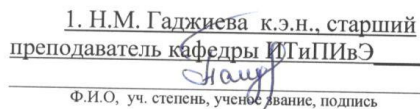 1. Н.М. Гаджиева к.э.н., старший
преподаватель кафедры ИТиПИвЭ
Ф.И.О, уч. степень, ученое звание, подпись